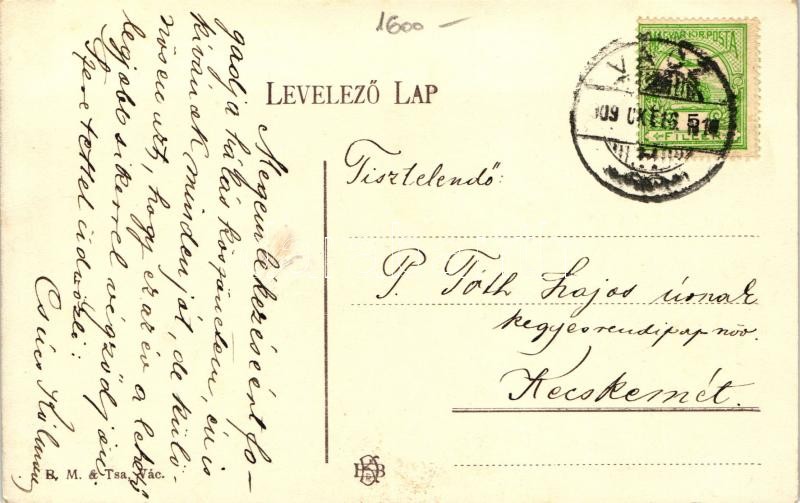 1600-
LEVELEZŐ LAP
MAGYAR KIR. POSTA
5
FILLÉR
VÁC
909 OKT
Megemlékezéseért fo-
gadja hálás köszönetem, én is
kívánok minden jót, de külö-
nösen azt, hogy ez az év a lehető
legjobb sikerrel végződjön.
Szeretettel üdvözli:
Csúcs Kálmán
Tisztelendő:
P. Tóth Lajos úrnak
kegyesrendi pap növ.
Kecskemét.
B. M. & Tsa, Vác.